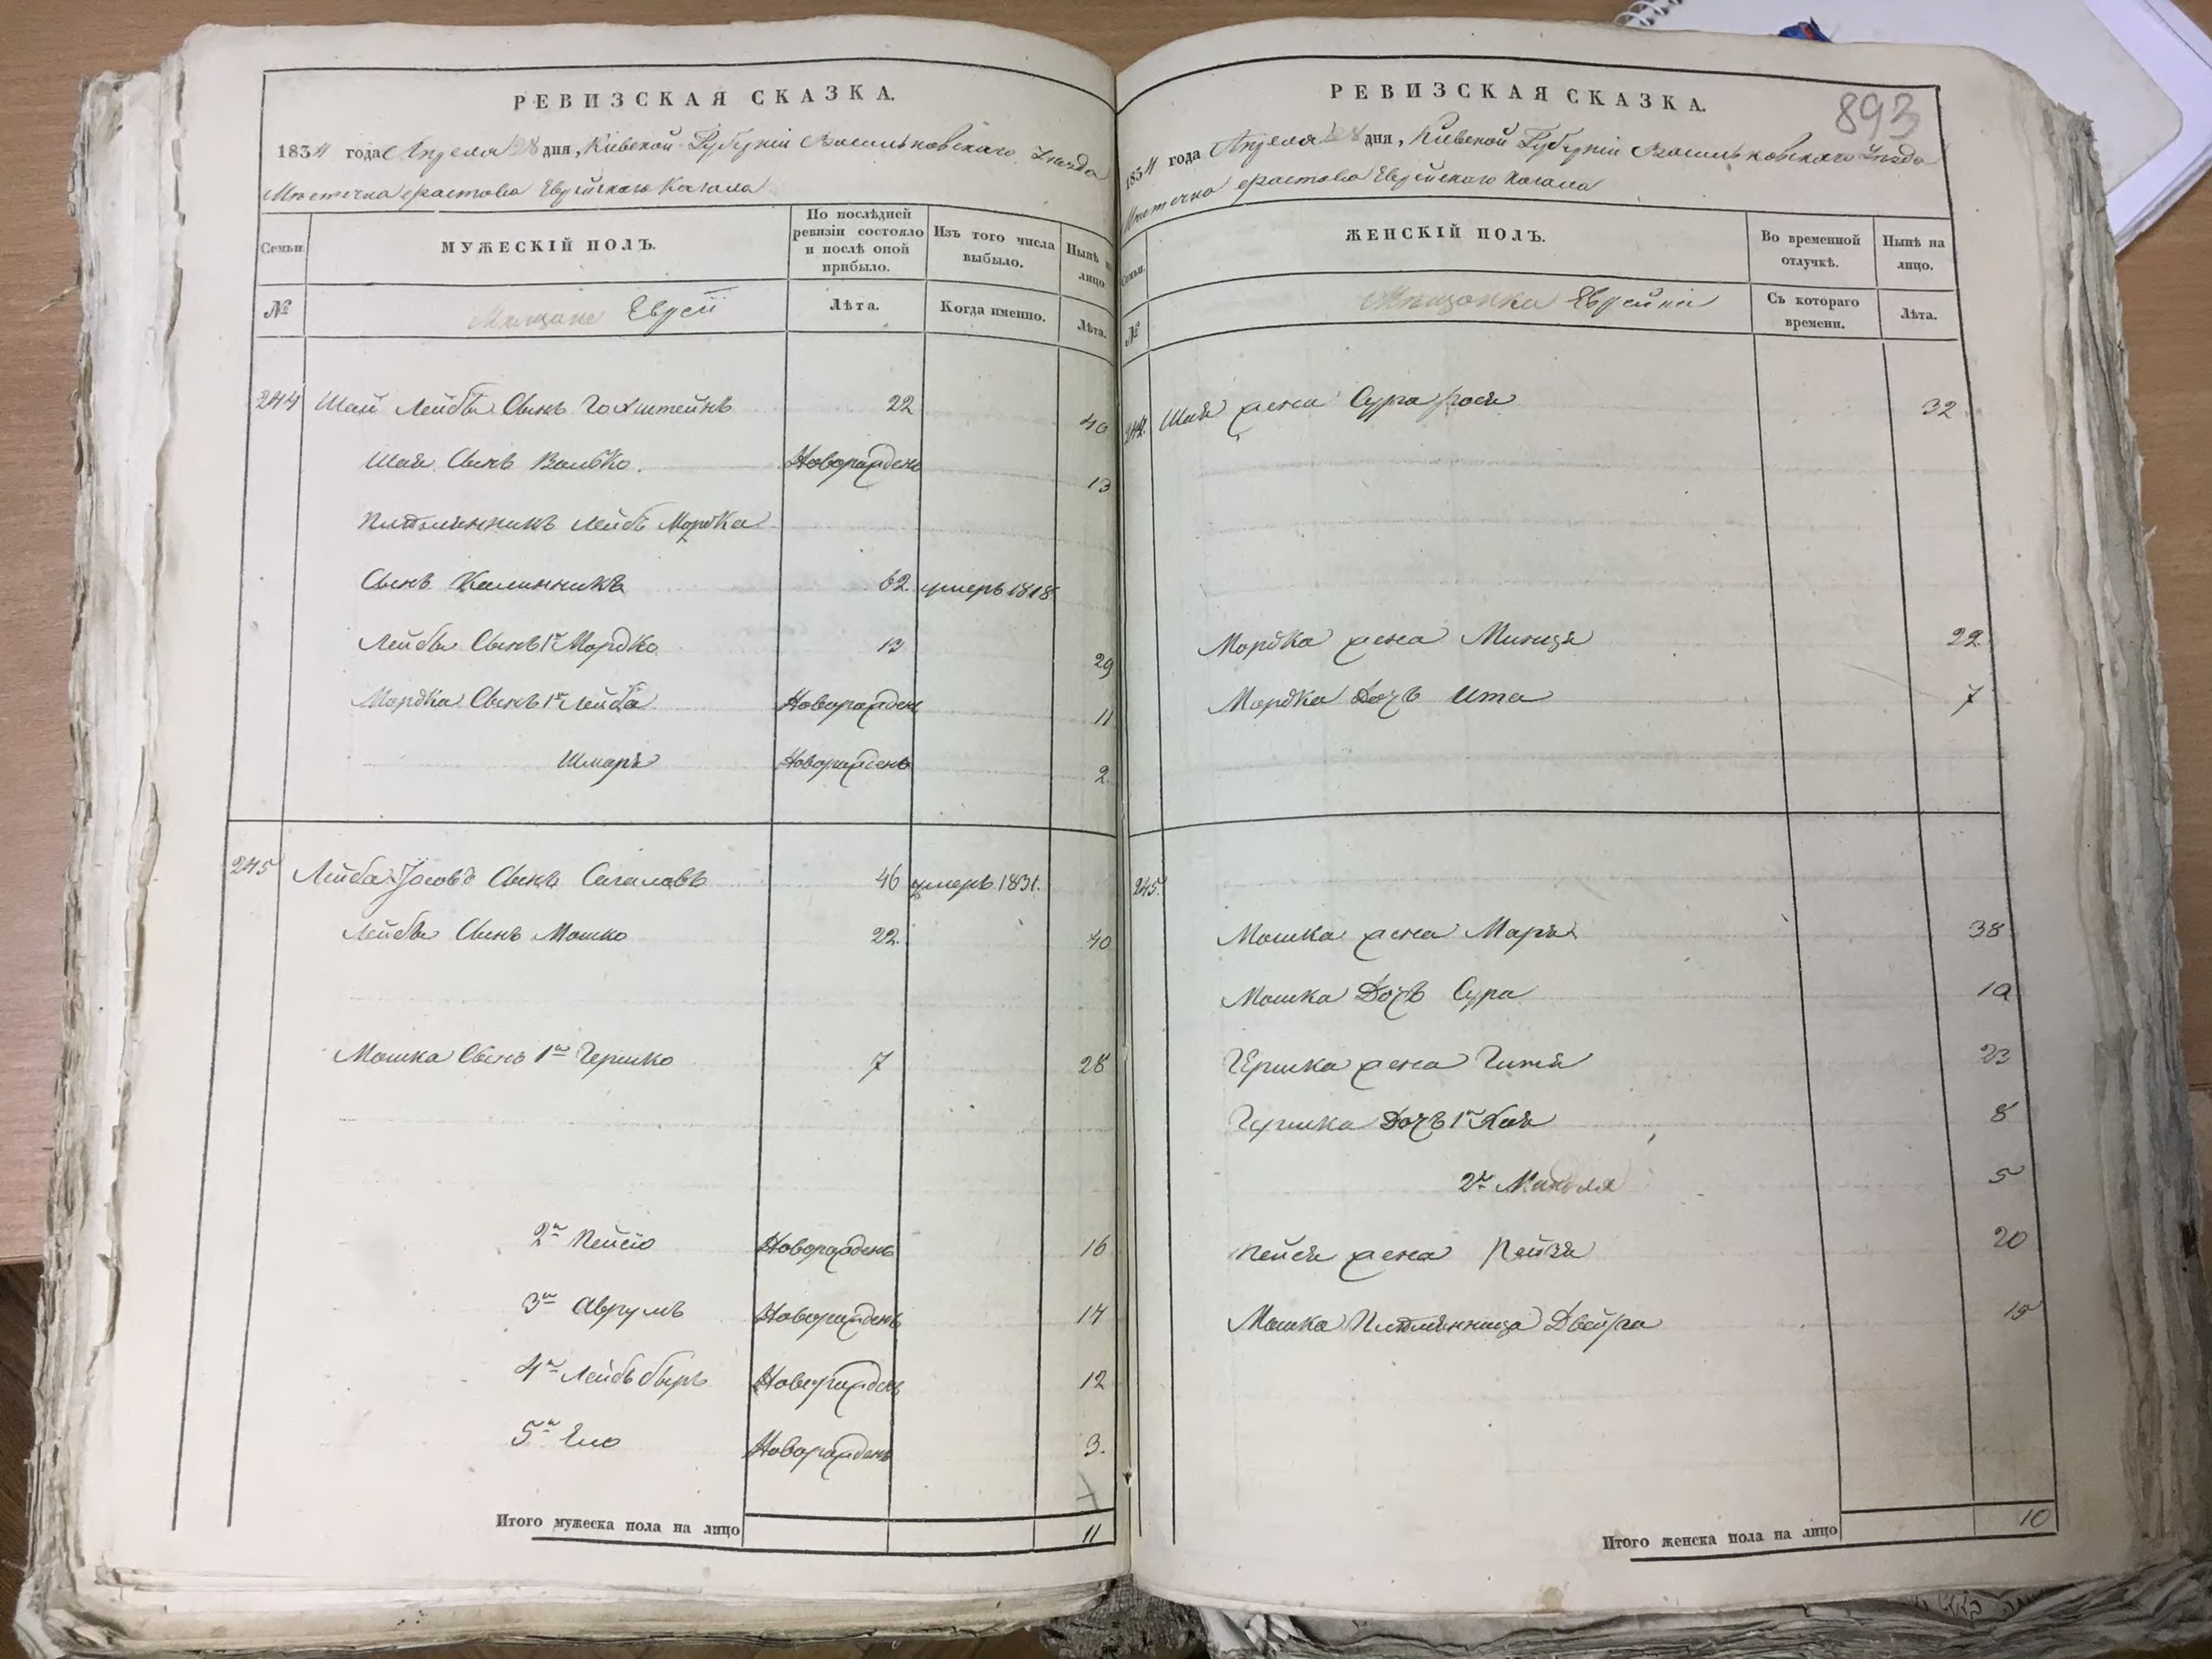 РЕВИЗСКАЯ СКАЗКА.
1834 года Апреля 28 дня, Кіевской Губерніи Васильковскаго Уезда
Местечка Фастова Еврейскаго Кагала
Семьи
МУЖЕСКІЙ ПОЛЪ.
По послѣдней ревизіи состояло и послѣ оной прибыло.
Изъ того числа выбыло.
Нынѣ на лицо.
№
Мещане Евреи
Лѣта.
Когда именно.
Лѣта.
244 Шая Лейбы Сынъ Гохштейнъ 22 40
Шаи Сынъ Волько Новорожденъ 13
Племянникъ Лейбъ Мордка
Сынъ 62 умеръ 1818
Лейбы Сынъ 1й Мордко 13 29
Мордка Сынъ 1й Лейба Новорожденъ 11
Шмарь Новорожденъ 2
245 Лейба Іосовъ Сынъ Сагаловъ 46 умеръ 1831.
Лейбы Сынъ Мошко 22 40
Мошка Сынъ 1й Гершко 7 28
2й Пейсо Новорожденъ 16
3й Аврумъ Новорожденъ 14
4й Лейбъ Беръ Новорожденъ 12
5й Ело Новорожденъ 3.
Итого мужеска пола на лицо 11
РЕВИЗСКАЯ СКАЗКА.
893
1834 года Апреля 28 дня, Кіевской Губерніи Васильковскаго Уезда
Местечка Фастова Еврейскаго Кагала
Семьи.
ЖЕНСКІЙ ПОЛЪ.
Во временной отлучкѣ.
Нынѣ на лицо.
№
Мещанки Еврейки
Съ котораго времени.
Лѣта.
244. Шаи жена Сура Рося 32
Мордка жена Минця 29
Мордка Дочь Ита 7
245.
Мошка жена Марья 38
Мошка Дочь Сура 10
Гершка жена Гитя 23
Гершка Дочь 1я Хая 8
2я 5
Пейси жена Рейзя 20
Мошка Племянница Двейра 15
Итого женска пола на лицо 10